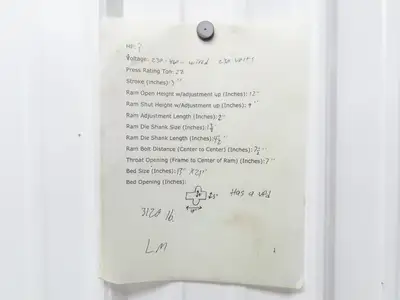 HP: ?
Voltage: 230-460- wired 230 volts
Press Rating Ton: 28
Stroke (inches): 3"
Ram Open Height w/adjustment up (Inches): 12"
Ram Shut Height w/adjustment up (Inches): 9"
Ram Adjustment Length (Inches): 2"
Ram Die Shank Size (Inches):
Ram Die Shank Length (Inches):
Ram Bolt Distance (Center to Center) (Inches): 7½"
Throat Opening (Frame to Center of Ram) (Inches): 7"
Bed Size (Inches): X21"
Bed Opening (Inches):
Has a
3120 lb.
LM